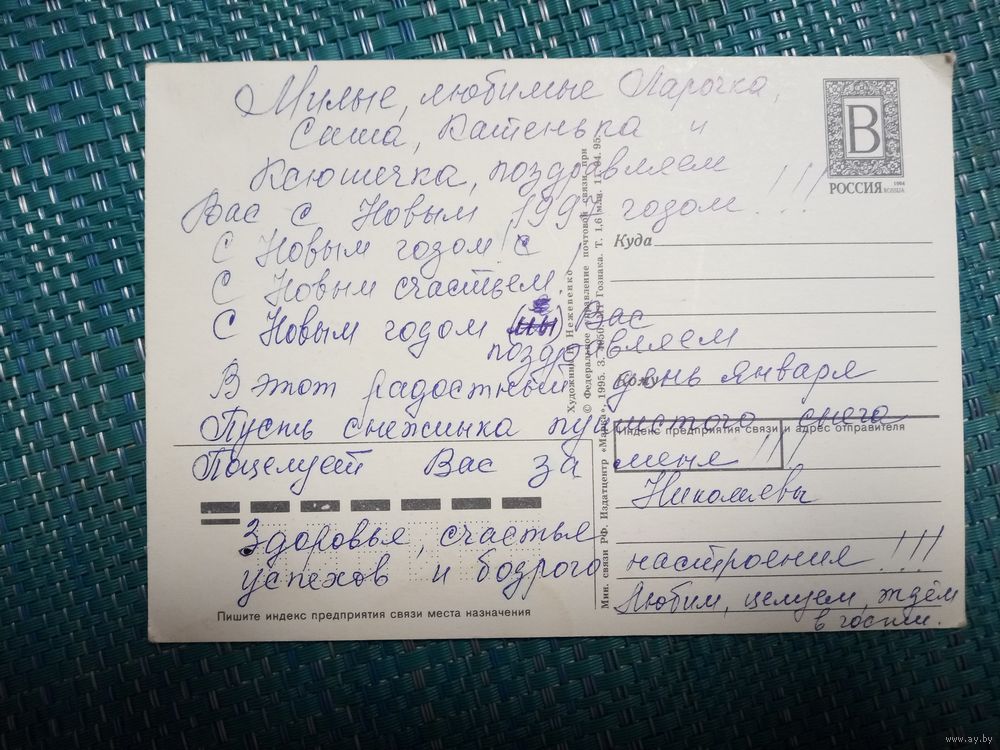 Милые, любимые Ларочка,
Саша, Катенька и
Ксюшечка, поздравляем
Вас с Новым 1997 годом!!!
С Новым годом! с
С Новым счастьем!
С Новым годом (мы) Вас
поздравляем
В этот радостный день января
Пусть снежинка пушистого снега
Поцелует Вас за меня!!!
Николаевы
Здоровья, счастья
успехов и бодрого настроения!!!
Любим, целуем, ждём
в гости.
В
РОССИЯ 1994
Куда
Кому
Индекс предприятия связи и адрес отправителя
Пишите индекс предприятия связи места назначения
Художник Неженко
© Федеральное управление почтовой связи при
Мин. связи РФ. Издатцентр «Марка», 1995. З. Гознака. Т. 1,6 млн. 11.04.95.
www.ay.by